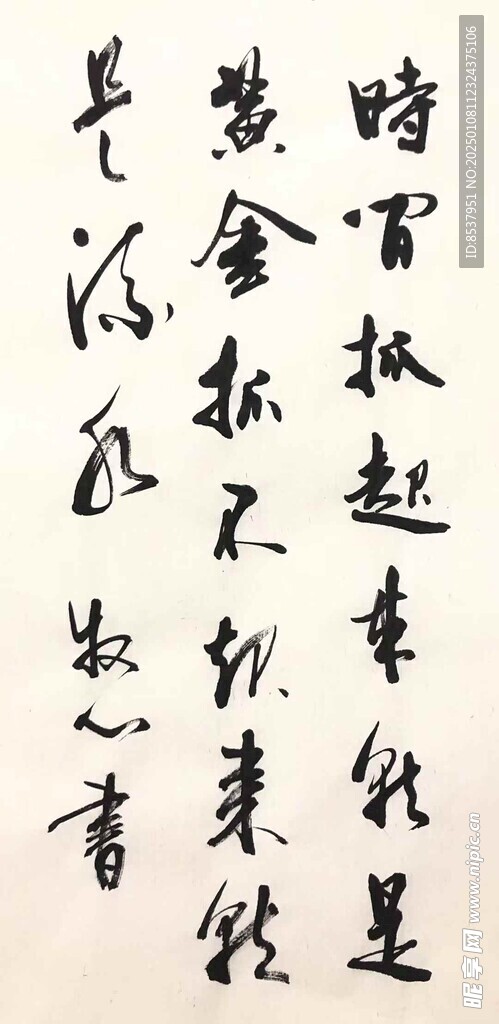 時间抓起来就是
黄金抓不起来就
是流水 牧心書
ID:8537951 NO:20250108112324375106
昵享网 www.nipic.cn